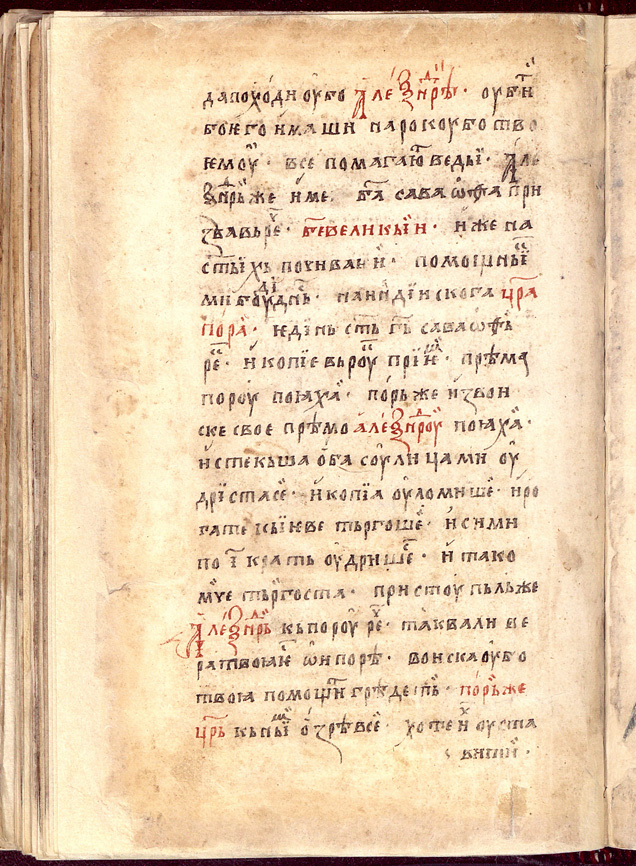 да походи оубо Алеѯнⷣрⷭе · оубїи
боѥго имаши на рокоу бо тво
ѥмоу · все помагаютⷭ веды · Але
ѯнⷣрьже име. ба҃ саваѡѳа при
звавь рⷱе · бе҃ великыи · иже на
ст҃ыихь почиваѥи · помощниⷦ
ми боуди дн҃ьⷭ · на индїискога цр҃а
пора · ѥдїнь ст҃ь гь҃ саваѡѳь
рⷱе · и копїе вь роуⷦ прїиⷨ · прѣмⷪ
пороу поꙗхаⷯ · порьже из вои
ске свое прѣмо алеѯнⷣроу поꙗхаⷯ ·
и стекьша оба соулицами оу
дрїстасеⷭ · и копїа оуломише · и ро
гатекыѥве тьргошеⷭ · и сими
по г҃ крать оудришеⷭ · и тако
мⷩуе тьргоста · пристоупльже
Алеѯнⷣрь кь пороу рⷱе · таква ли ве
ра твоꙗѥⷭ ѡи поре · воиска оубо
твоꙗ помощⷩи греде ти · порьже
цр҃ь кь ныⷨ озрѣвсе · хотеи оуста
вити ·